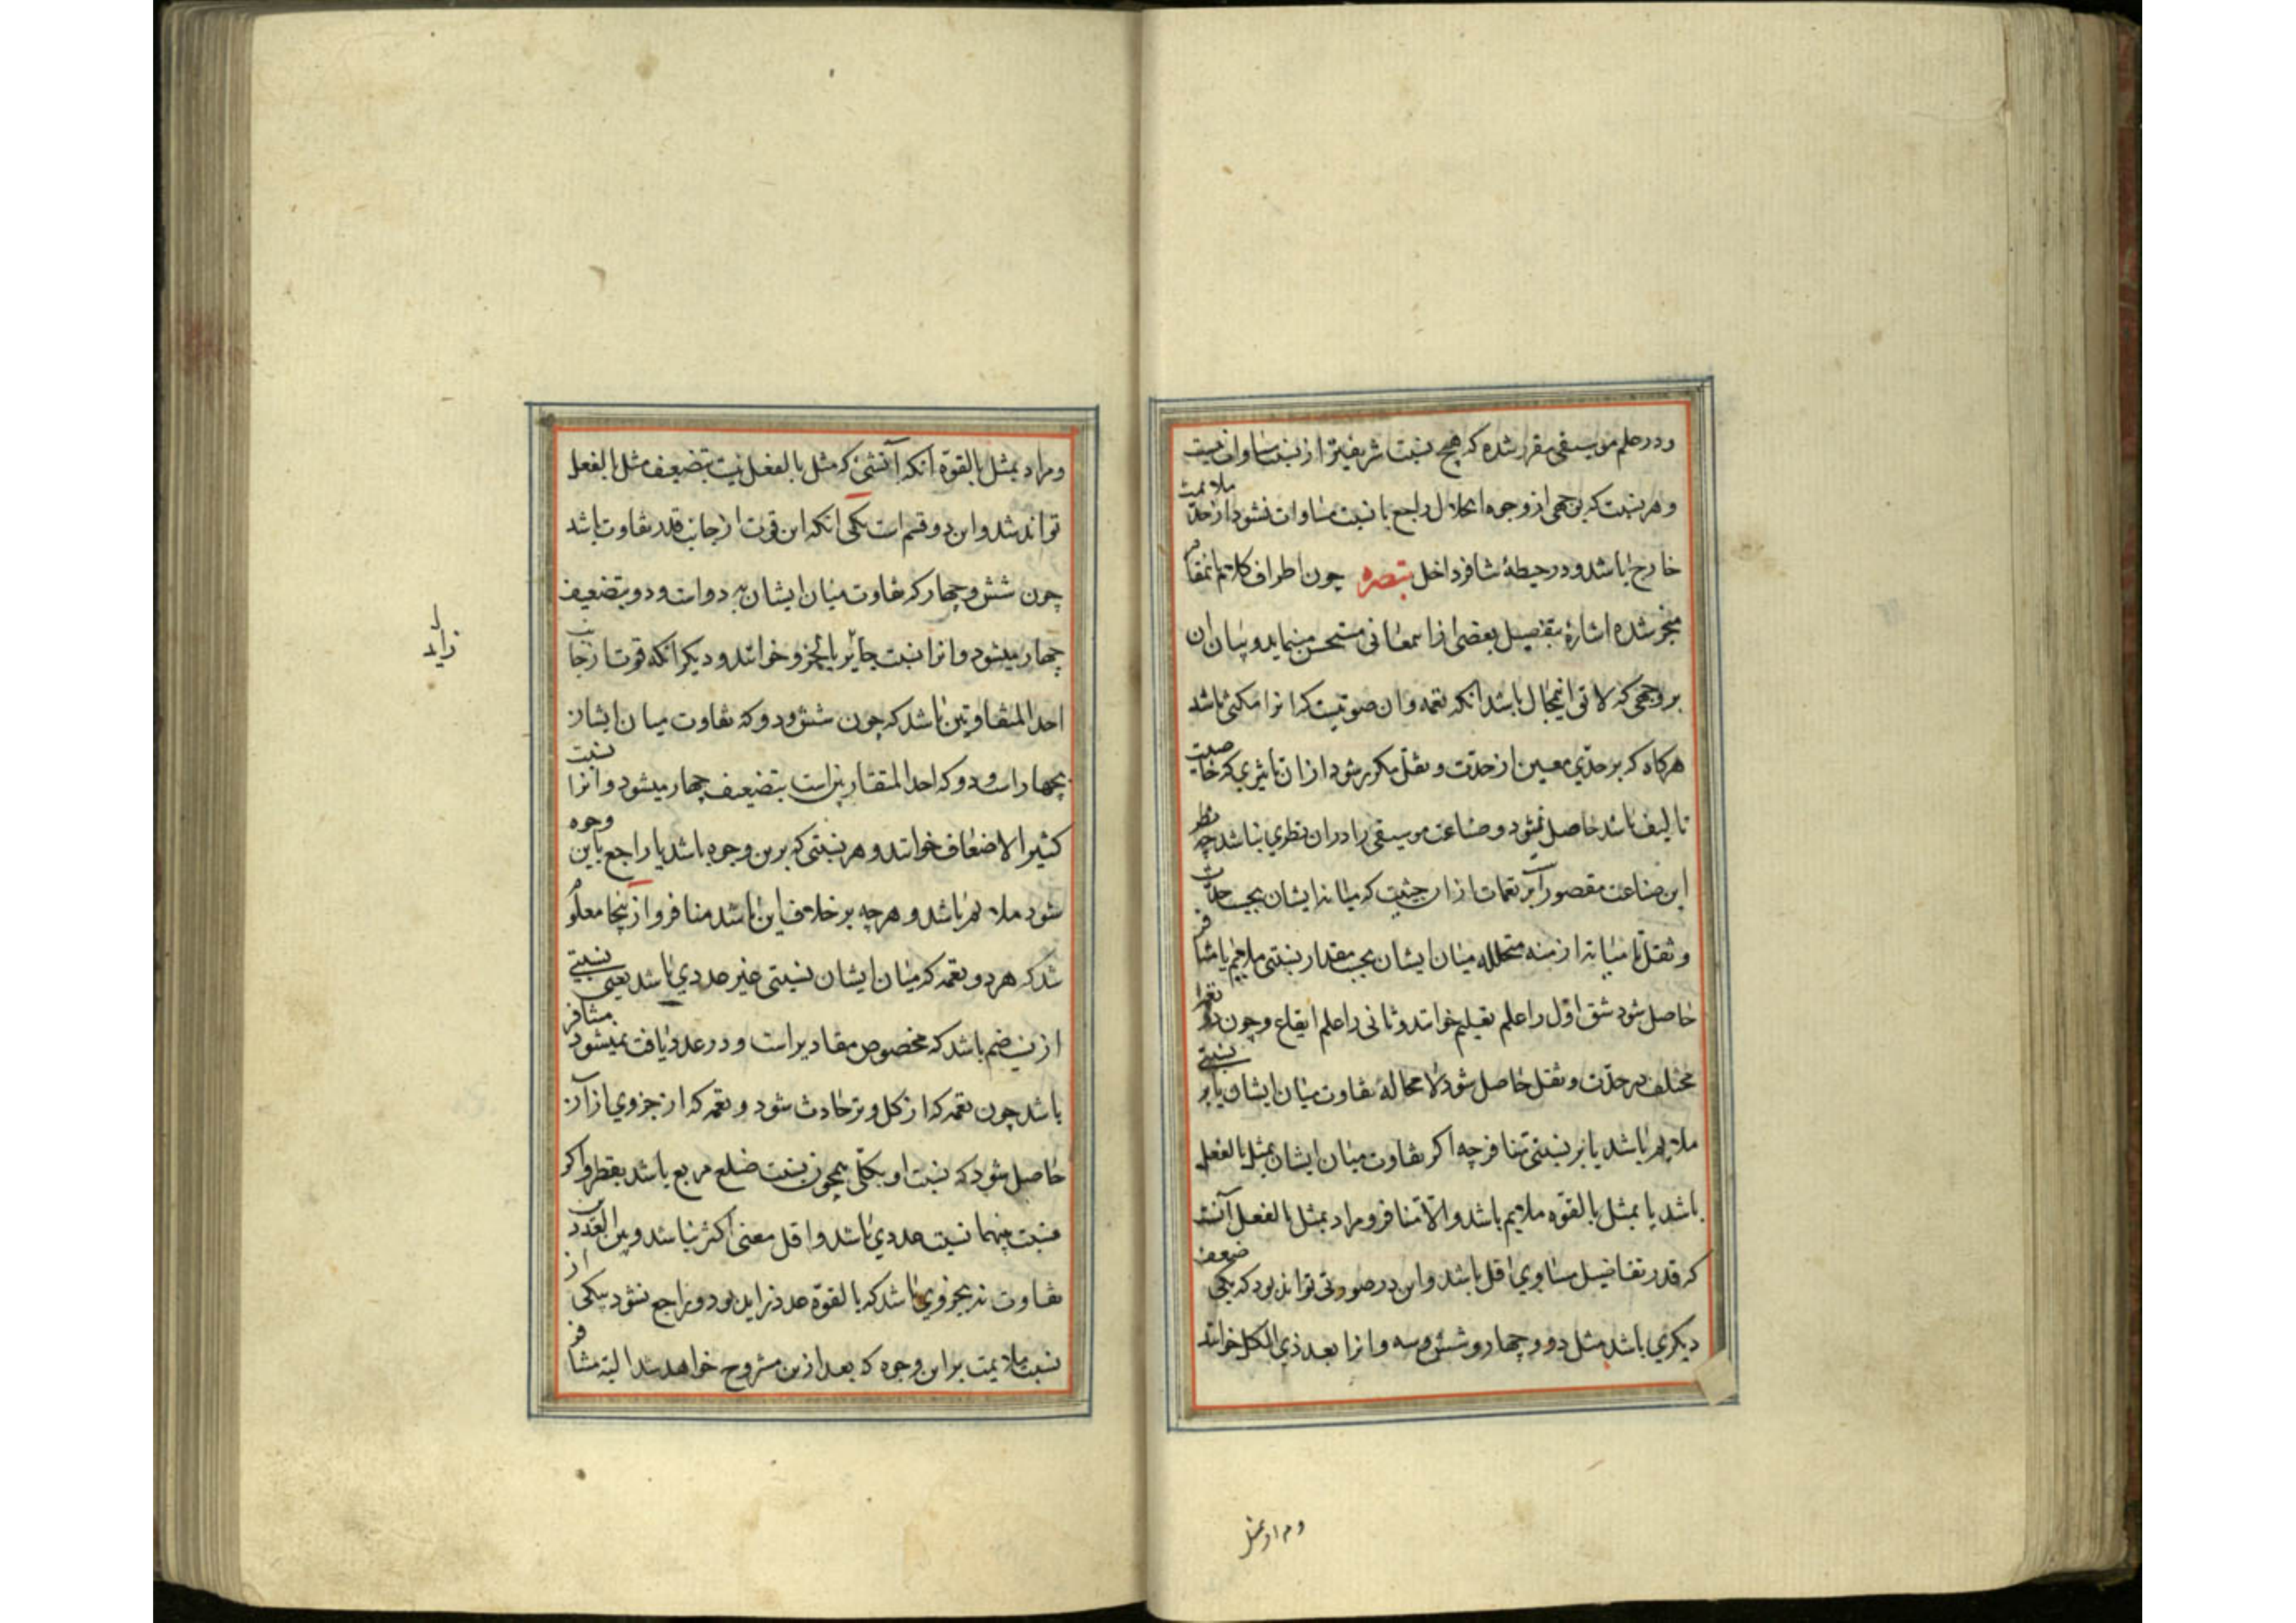 ودر علم موسیقی مقرر شده که هیچ نسبت شریفتر از نسبت مساوات نیست
و هر نسبت که بوجهی از وجوه انحلال راجع با نسبت مساوات نشود از حد ملایمت
خارج باشد و در حیطهٔ تنافر داخل تبصره چون اطراف کلام بانمقام
منجر شده اشارهٔ بتفصیل بعضی از اسمعانی مستحسن مینماید و بیان ان
بر وجهی که لایق اینحال باشد انکه نغمه وان صوتیست که انرا مکثی باشد
هرکاه که بر حدّی معین از حدّت و ثقل مکرر شود از ان تاثیری که خاصیت
تالیف باشد حاصل نمیشود و صناعت موسیقی را در ان نظری نباشد چه نظر
این صناعت مقصور است بر نغمات از ان حیثیت که میانه ایشان بحسب حدّت
و ثقل یا میانه ازمنه متخلله میان ایشان بحسب مقدار نسبتی ملایم یا متنافر
حاصل شود شق اوّل را علم تالیف خوانند و ثانی را علم ایقاع و چون دو نغمه
مختلف در حدّت و ثقل حاصل شود لا محاله تفاوت میان ایشان یا بر نسبتی
ملایم باشد یا بر نسبتی متنافر چه اکر تفاوت میان ایشان بمثل بالفعل
باشد یا بمثل بالقوّه ملایم باشد و الّا متنافر و مراد بمثل بالفعل آنست
که قدر تفاضیل مساوی اقل باشد و این در صورتی تواند بود که یکی ضعف
دیکری باشد مثل دو و چهار و شش و سه و انرا بعد ذی الکل خوانند
و مراد بمثل
و مراد بمثل بالقوّه انکه آنشئ که مثل بالفعل نیست بتضعیف مثل بالفعل
تواند شد و این دو قسم است یکی انکه این قوت از جانب قدر تفاوت باشد
چون شش و چهار که تفاوت میان ایشان به دو است و دو بتضعیف
چهار میشود و انرا نسبت جایز بالجزو خوانند و دیکر انکه قوت از جانب
احد المتفاوتین باشد که چون شش و دو که تفاوت میان ایشان
بچهار است و دو که احد المتقاربین است بتضعیف چهار میشود و انرا نسبت
کثیر الاضعاف خوانند و هر نسبتی که برین وجوه باشد یا راجع باین وجوه
شود ملایم باشد و هرچه بر خلاف این باشد متنافر و از ینجا معلوم
شد که هر دو نغمه که میان ایشان نسبتی غیر عددی باشد یعنی نسبتی
از نسب صم باشد که مخصوص مقادیر است و در عدد یافت نمیشود متنافر
باشد چون نغمه که از کل وتر حادث شود و نغمه که از جزوی از آن
حاصل شود که نسبت او بکلّ همچون نسبت ضلع مربع باشد بقطر و اکر
نسبت بینهما نسبت عددی باشد و اقل معنی اکثر نباشد و بین العددین
تفاوت نه بجزوی باشد که بالقوّه عدد زاید بود و راجع نشود بیکی از
نسبت ملایمت بر این وجوه که بعد ازین مشروح خواهد شد البته متنافر
زاید